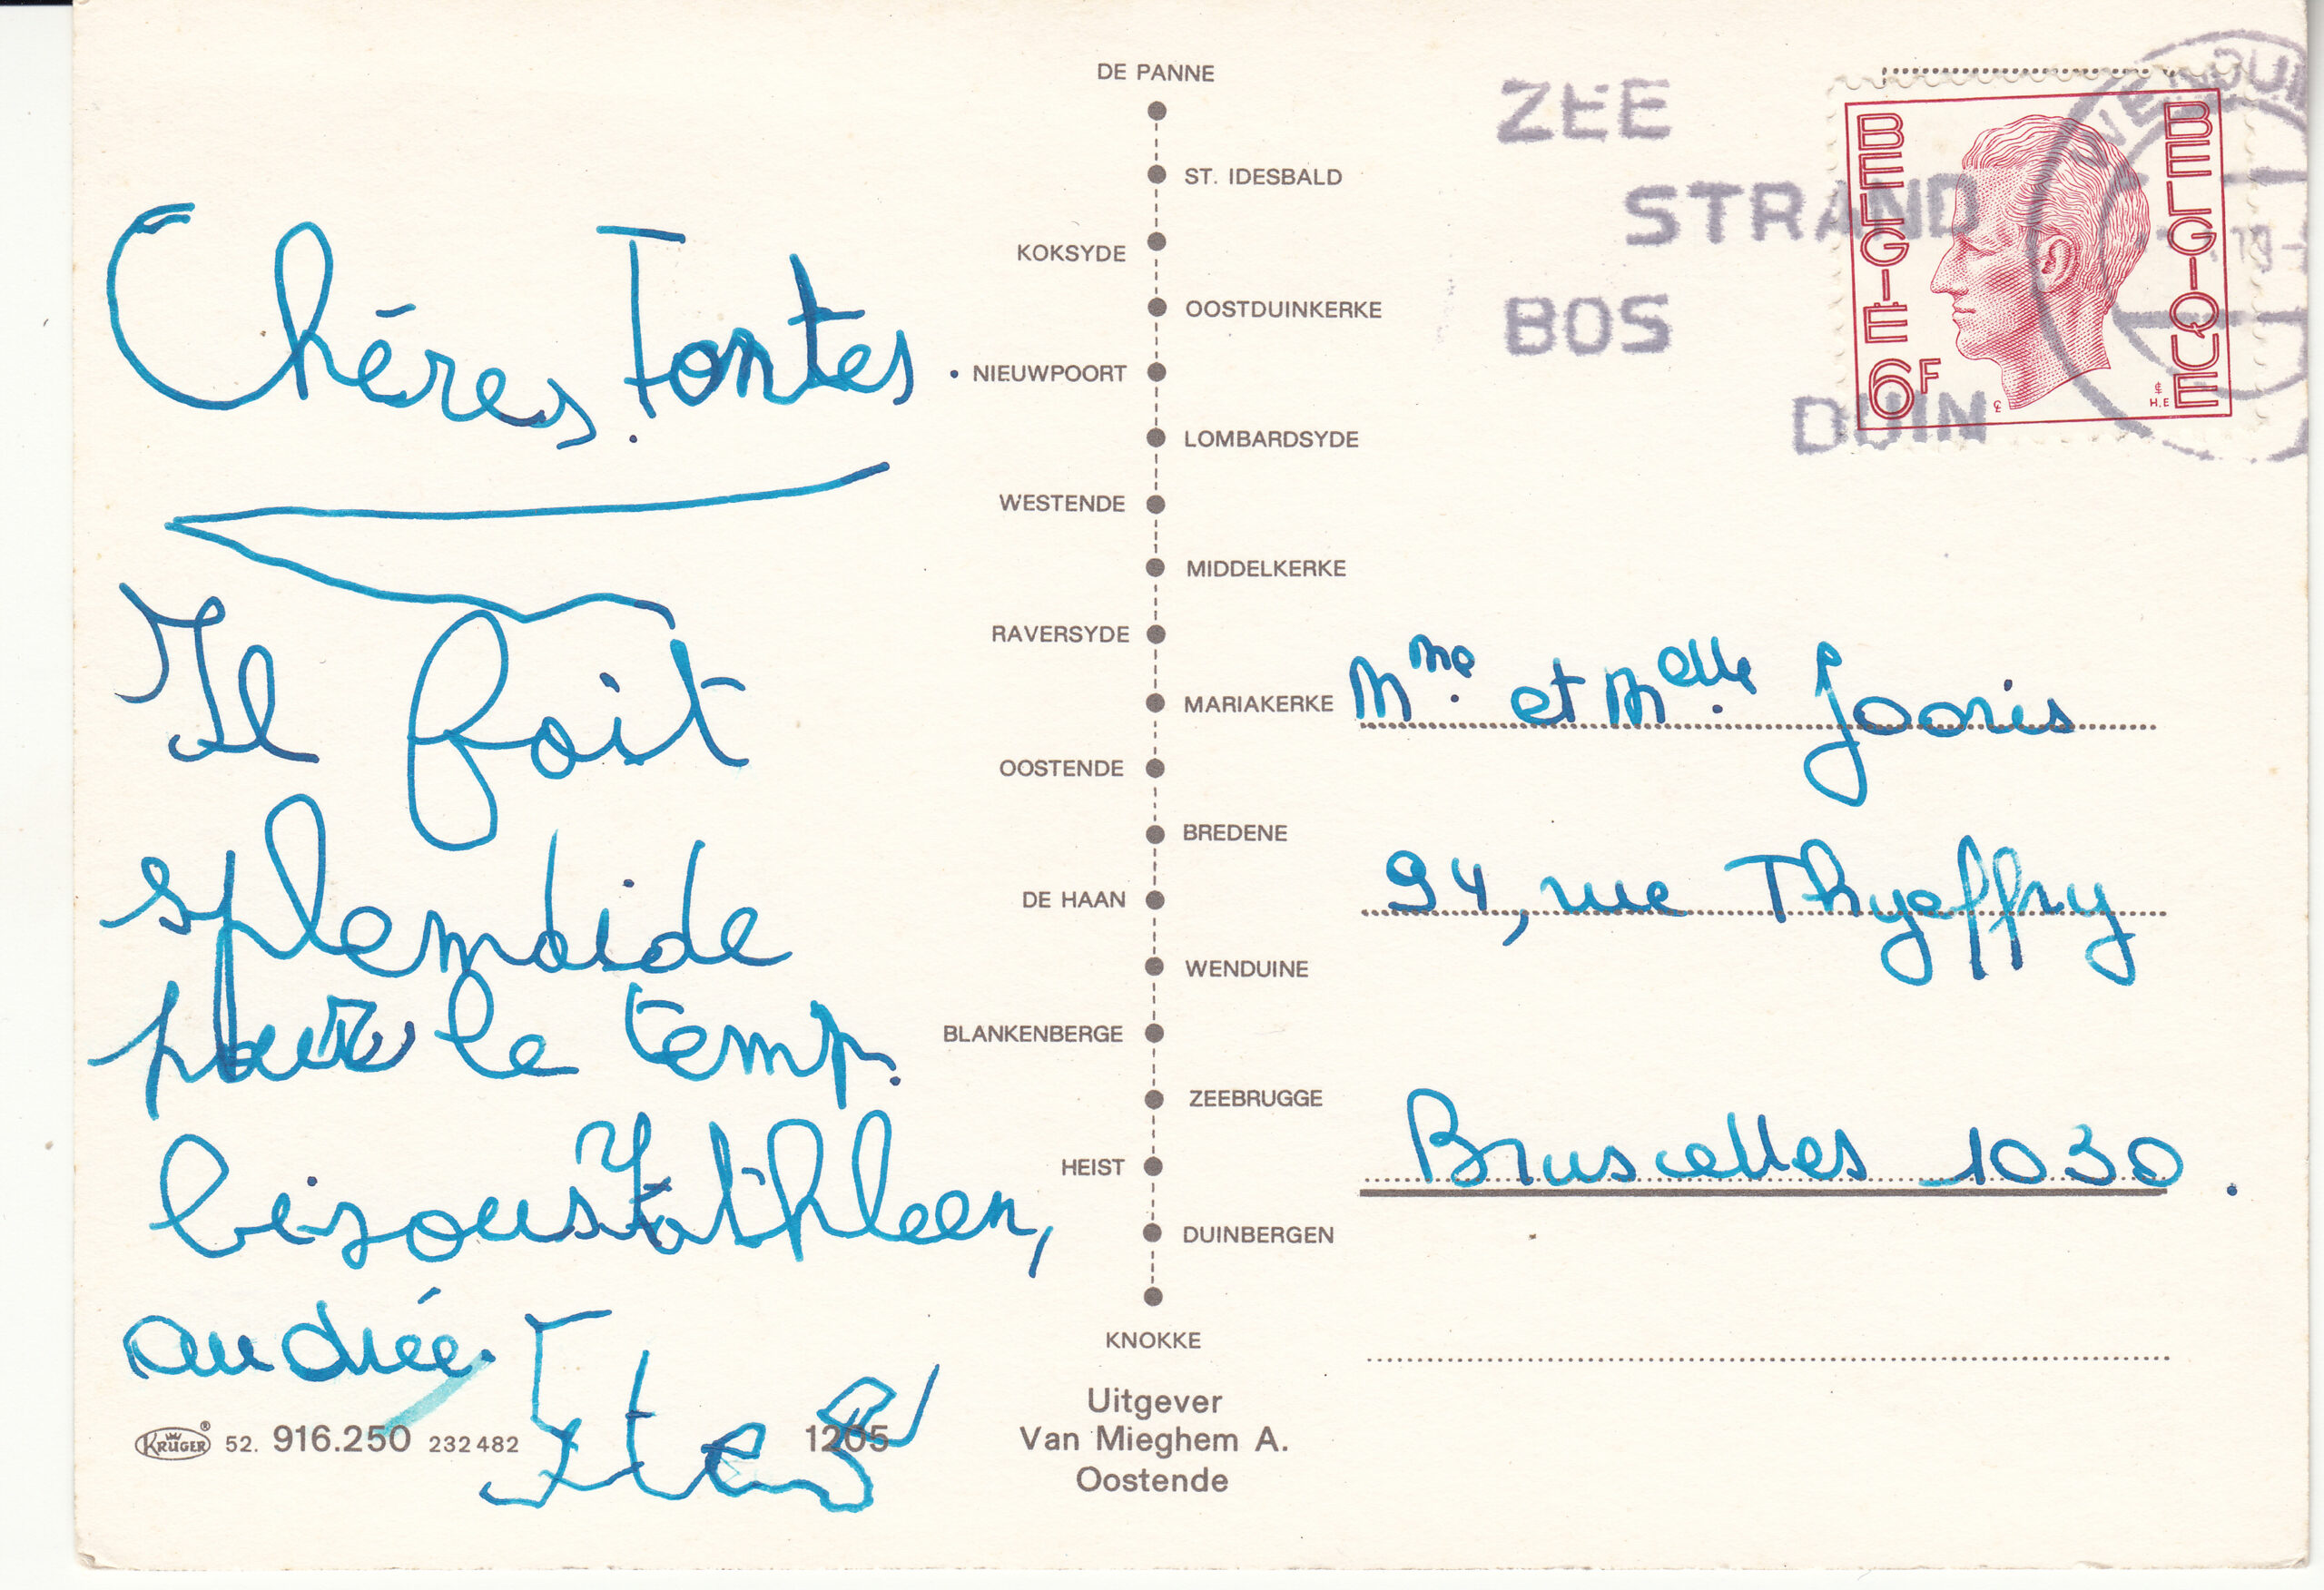 Chéres Tantes.
Il fait
splendide
pour le temp.
bisous Kathleen,
andrée.
DE PANNE
ST. IDESBALD
KOKSYDE
OOSTDUINKERKE
NIEUWPOORT
LOMBARDSYDE
WESTENDE
MIDDELKERKE
RAVERSYDE
MARIAKERKE
OOSTENDE
BREDENE
DE HAAN
WENDUINE
BLANKENBERGE
ZEEBRUGGE
HEIST
DUINBERGEN
KNOKKE
Uitgever
Van Mieghem A.
Oostende
KRÜGER® 52. 916.250 232482 1205
ZEE
STRAND
BOS
DUIN
BELGIË
BELGIQUE
6F
Mme. et Melle. Jooris
94, rue Thyeffry
Bruscelles 1030.